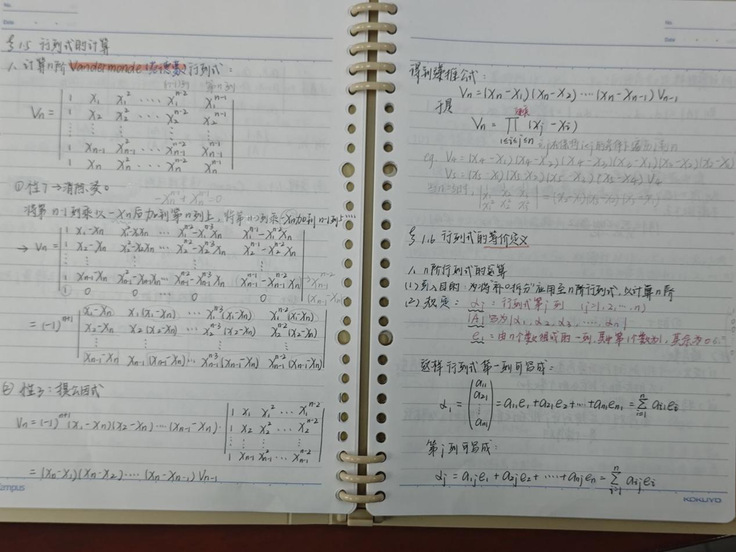 §1.5 行列式的计算
1. 计算n阶 Vandermonde 行列式:
Vn = | 1 x₁ x₁² … x₁ⁿ⁻² x₁ⁿ⁻¹ |
| 1 x₂ x₂² … x₂ⁿ⁻² x₂ⁿ⁻¹ |
| ⋮ ⋮ ⋮ ⋮ ⋮ |
| 1 xₙ₋₁ xₙ₋₁² … xₙ₋₁ⁿ⁻² xₙ₋₁ⁿ⁻¹ |
| 1 xₙ xₙ² … xₙⁿ⁻² xₙⁿ⁻¹ |
① 性7→消除,变0
将第n-1列乘以-xₙ后加到第n列上,
→ Vn = | 1 x₁-xₙ x₁²-x₁xₙ … x₁ⁿ⁻²-x₁ⁿ⁻³xₙ x₁ⁿ⁻¹-x₁ⁿ⁻²xₙ |
| 1 x₂-xₙ x₂²-x₂xₙ … x₂ⁿ⁻²-x₂ⁿ⁻³xₙ x₂ⁿ⁻¹-x₂ⁿ⁻²xₙ |
| ⋮ ⋮ ⋮ ⋮ |
| 1 xₙ₋₁-xₙ xₙ₋₁²-xₙ₋₁xₙ … xₙ₋₁ⁿ⁻²-xₙ₋₁ⁿ⁻³xₙ xₙ₋₁ⁿ⁻¹-xₙ₋₁ⁿ⁻²xₙ |
| 1 0 0 … 0 0 |
= (-1)ⁿ⁺¹ | x₁-xₙ x₁(x₁-xₙ) … x₁ⁿ⁻³(x₁-xₙ) x₁ⁿ⁻²(x₁-xₙ) |
| x₂-xₙ x₂(x₂-xₙ) … x₂ⁿ⁻³(x₂-xₙ) x₂ⁿ⁻²(x₂-xₙ) |
| ⋮ ⋮ ⋮ ⋮ |
| xₙ₋₁-xₙ xₙ₋₁(xₙ₋₁-xₙ) … xₙ₋₁ⁿ⁻³(xₙ₋₁-xₙ) xₙ₋₁ⁿ⁻²(xₙ₋₁-xₙ) |
② 性3:提公因式
Vn = (-1)ⁿ⁺¹ (x₁-xₙ)(x₂-xₙ)…(xₙ₋₁-xₙ)· | 1 x₁ x₁² … x₁ⁿ⁻² |
| 1 x₂ x₂² … x₂ⁿ⁻² |
| ⋮ ⋮ ⋮ ⋮ |
| 1 xₙ₋₁ xₙ₋₁² … xₙ₋₁ⁿ⁻² |
= (xₙ-x₁)(xₙ-x₂)…(xₙ-xₙ₋₁) Vₙ₋₁
得到递推公式:
Vn = (xₙ-x₁)(xₙ-x₂)…(xₙ-xₙ₋₁) Vₙ₋₁
于是
Vn = ∏ (xⱼ-xᵢ)
1≤i<j≤n
§1.6 行列式的等价定义
1. n阶行列式的运算
(1) 引入目的:为将补0拆分应用至n阶行列式,以计算n阶
(2) 规定: αⱼ:行列式第j列 (j=1,2,…,n)
|A| 记为|α₁, α₂, α₃, …, αₙ|
这样行列式第一列可写成:
α₁ = (a₁₁ a₂₁ ⋮ aₙ₁) = a₁₁e₁+a₂₁e₂+…+aₙ₁eₙ = Σ aᵢ₁eᵢ
第j列可写成:
αⱼ = a₁ⱼe₁+a₂ⱼe₂+…+aₙⱼeₙ = Σ aᵢⱼeᵢ
KOKUYO